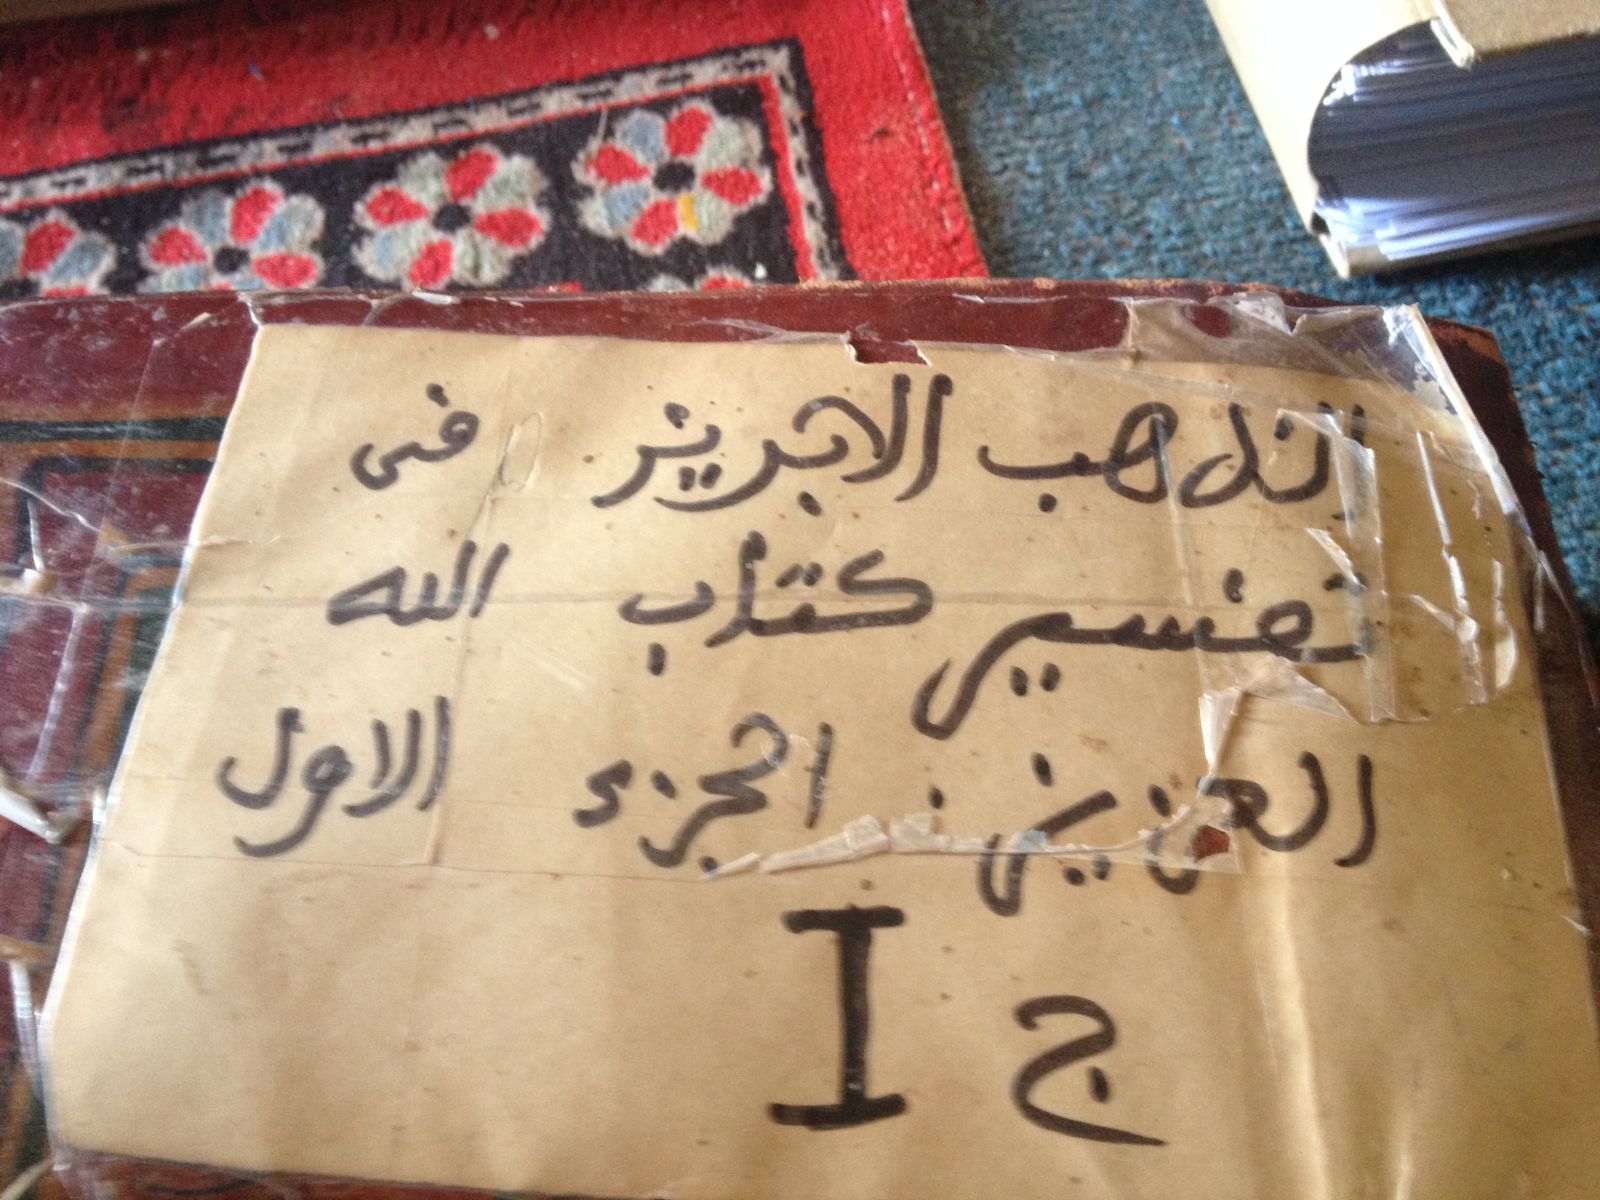 الذهب الابريز فى
تفسير كتاب الله
العزيز الجزء الاول
ج I